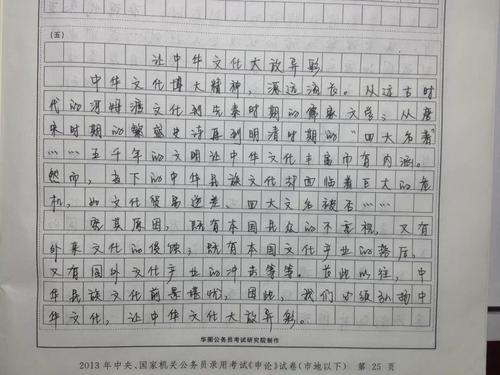 (五)
让中华文化大放异彩
中华文化博大精神，源远流长。从远古时
代的河姆渡文化到先秦时期的儒家文学；从唐
宋时期的繁盛史诗再到明清时期的“四大名著”
……五千年的文明让中华文化丰富而有内涵。
然而，当下的中华民族文化却面临着巨大的危
机，如文化贸易逆差、四大文名被否……
究其原因，既有本国民众的不重视，又有
外来文化的侵蚀；既有本国文化产业的落后，
又有国外文化产业的冲击等等。长此以往，中
华民族文化前景堪忧，因此，我们必须弘扬中
华文化，让中华文化大放异彩。
华图公务员考试研究院制作
2013年中央、国家机关公务员录用考试《申论》试卷(市地以下) 第 25 页